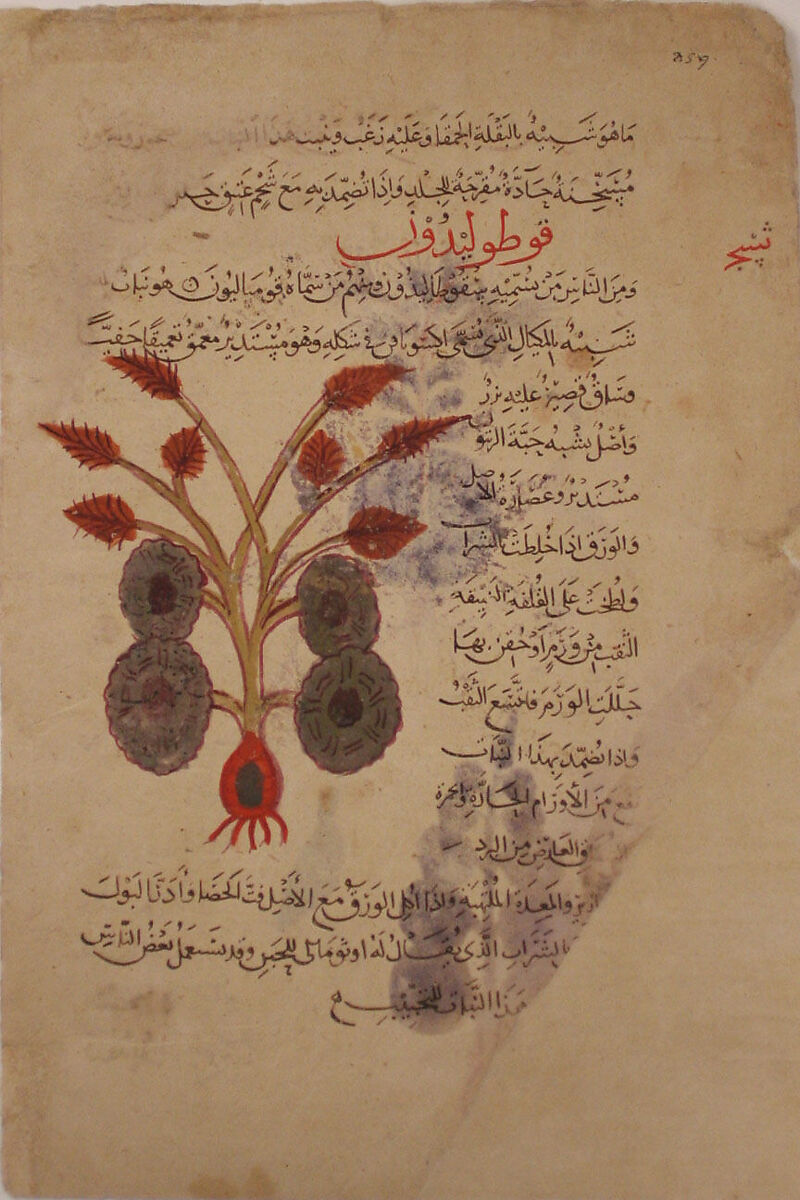 ما هو شبيه بالبقلة الحمقا وعليه زغب وينبت هذا النبات
مسخنة حادة مقرحة للجلد واذا تضمد به مع شحم عتيق
قوطوليدون
ومن الناس من يسميه سقوطاليذون ومنهم من سماه قومباليون هو نبات
شبيه بالمكيال الذي يسمى اكسوبافن في شكله وهو مستدير معمق تعميقا خفيا
وساق قصير عليه بزر
وأصل يشبه حبة الزيتون
مستدير وعصارة الاصل
والورق اذا خلطت بالشراب
ولطخت على القلفة الضيقة
الثقب من ورم أو حقن بها
حللت الورم فاتسع الثقب
واذا تضمد بهذا النبات
من الأورام الحارة والحمرة
العارض من البرد
والمعدة الملتهبة واذا اكل الورق مع الأصل فت الحصا وأدر البول
بالشراب الذي يقال له اونومالي للحبن وقد يستعمل بعض الناس
هذا النبات للتحبيب